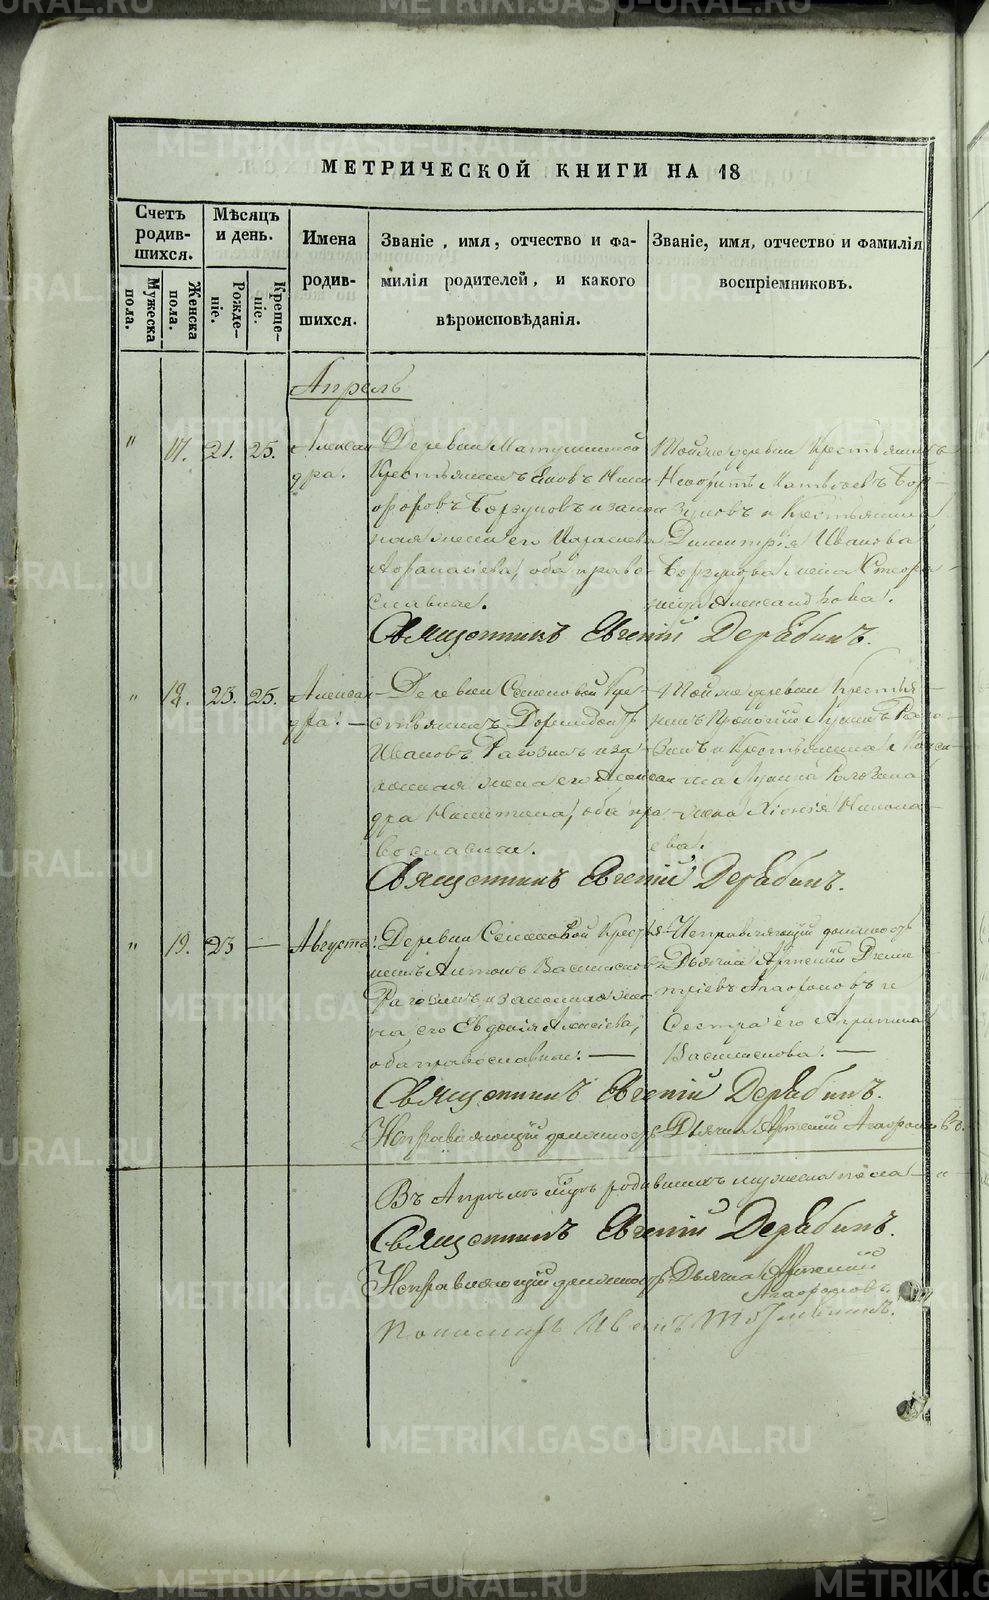 МЕТРИЧЕСКОЙ КНИГИ НА 18
Счетъ родив-шихся.
Мужеска пола.
Женска пола.
Мѣсяцъ и день.
Рожде-ніе.
Креще-ніе.
Имена родив-шихся.
Званіе, имя, отчество и фа-
милія родителей, и какого
вѣроисповѣданія.
Званіе, имя, отчество и фамилія
воспріемниковъ.
Апрель
" 17. 21. 25.
Алексан
дра.
Деревни Матушиной
Крестьянинъ Ники
форовъ Борзуновъ и закон
ная жена его
Афанасіева, оба право
славные.
Тойже деревни Крестьянинъ
Матвѣевъ Бор
зуновъ и Крестьянина
Димитрія Иванова
Борзунова жена Стефа
нида Александрова.
Священникъ Евгеній Дерябинъ.
" 18. 23. 25.
Алексан
дра. —
Деревни Семеновой Кре
стьянинъ Дормидонтъ
Ивановъ Рагозинъ и за
конная жена его Алексан
дра Никитина, оба пра
вославные.
Тойже деревни Крестья
нинъ Прокопій Лукинъ Раго
зинъ и Крестьянина
Лукина Рагозина
жена Хіонія Никола
ева.
Священникъ Евгеній Дерябинъ.
" 19. 23 —
Августа.
Деревни Семеновой Кресть
нинъ Антонъ Васильевъ
Рагозинъ и законная же
на его Евдокія Алексіева,
оба православные. —
Исправляющій должность
Дьячка Артемій Дмит
ріевъ Агафоновъ и
Сестра его Агрипина
Васильева. —
Священникъ Евгеній Дерябинъ.
Исправляющій должность Дьячка Артемій Агафоновъ.
Въ Апрѣлѣ родившихъ мужеска пола — "
Священникъ Евгеній Дерябинъ.
Исправляющій должность Дьячка Артемій
Агафоновъ
Пономарь Иванъ
METRIKI.GASO-URAL.RU